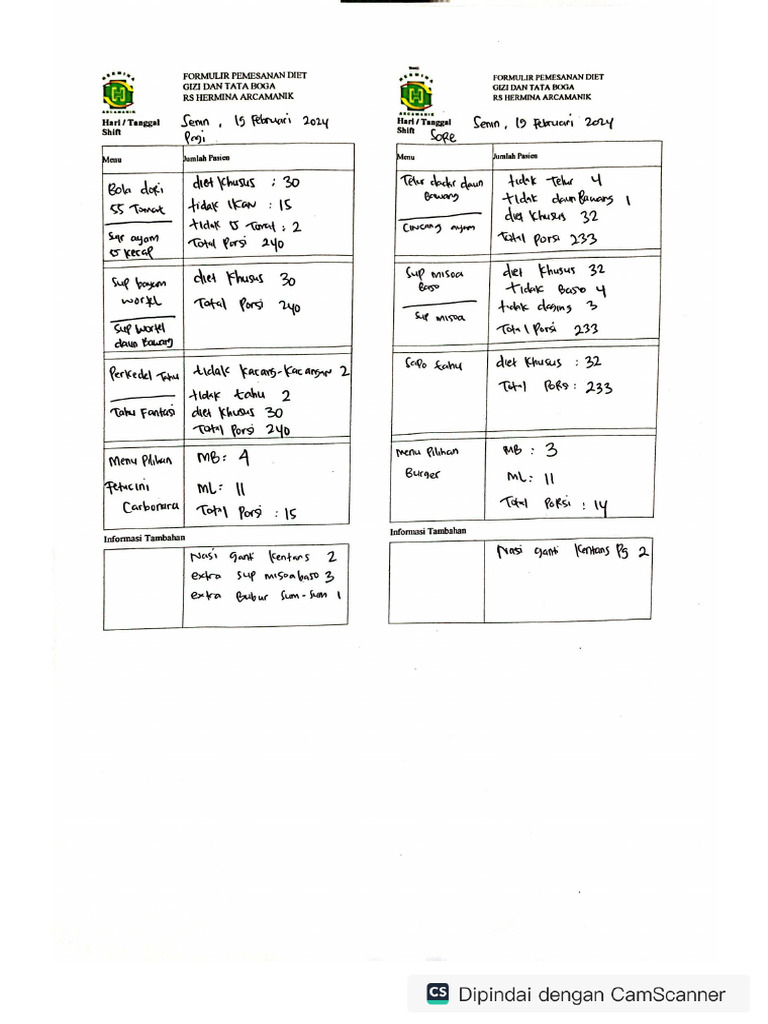 HERMINA
ARCAMANIK
FORMULIR PEMESANAN DIET
GIZI DAN TATA BOGA
RS HERMINA ARCAMANIK
Hari / Tanggal Senin, 15 Februari 2024
Shift Pagi
Menu Jumlah Pasien
Bola dori diet Khusus : 30
SS Tomat tidak IKAN : 15
tidak Tomat : 2
ayam Total Porsi 240
Kecap
Sup bayam diet Khusus 30
wortel Total Porsi 240
Sup wortel
daun Bawang
Perkedel Tahu tidak Kacang-Kacangan 2
tidak tahu 2
Tahu Fantasi diet Khusus 30
Total Porsi 240
Menu Pilihan MB : 4
Fetucini ML : 11
Carbonara Total Porsi : 15
Informasi Tambahan
Nasi ganti Kentang 2
extra sup misoa baso 3
extra Bubur Sum-Sum 1
HERMINA
ARCAMANIK
FORMULIR PEMESANAN DIET
GIZI DAN TATA BOGA
RS HERMINA ARCAMANIK
Hari / Tanggal Senin, 15 Februari 2024
Shift SORE
Menu Jumlah Pasien
Telur dadar daun tidak Telur 4
Bawang tidak daun Bawang 1
diet Khusus 32
Cincang ayam Total Porsi 233
Sup misoa diet Khusus 32
Baso tidak Baso 4
tidak daging 3
Sup misoa Total Porsi 233
Sapo tahu diet Khusus : 32
Total PoRSi : 233
Menu Pilihan MB : 3
Burger ML : 11
Total PoRSi : 14
Informasi Tambahan
Nasi ganti Kentang Pg 2
CS Dipindai dengan CamScanner